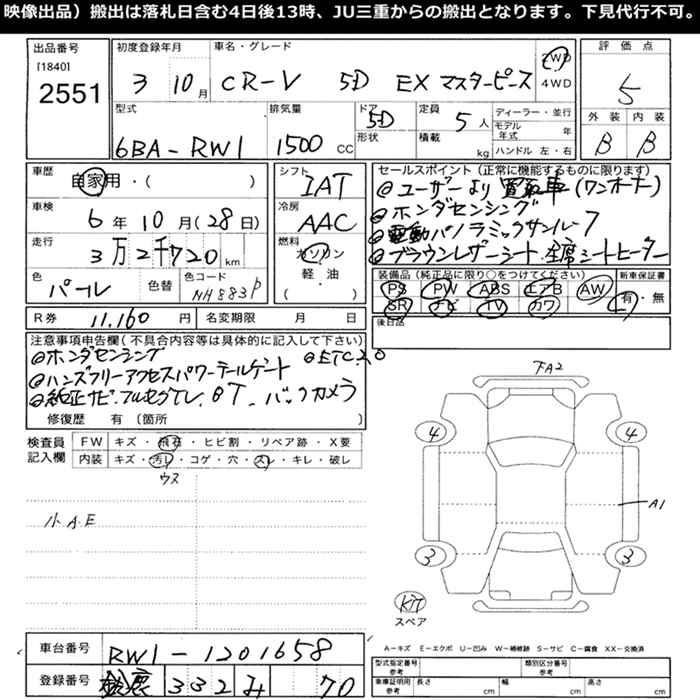 映像出品）搬出は落札日含む4日後13時、JU三重からの搬出となります。下見代行不可。
出品番号
[1840]
2551
初度登録年月
3 10月
車名・グレード
CR-V 5D EX マスターピース
2WD
4WD
評価点
5
外装 内装
B B
型式
6BA-RW1
排気量
1500 CC
ドア
5D
形状
定員
5人
積載
kg
ディーラー・並行
モデル年式 年
ハンドル 左・右
車歴
自家用・( )
車検
6年10月(28日)
走行
3万2千720km
色
パール
色替
色コード
NH883P
シフト
IAT
冷房
AAC
燃料
ガソリン
軽・油
( )
セールスポイント（正常に機能するものに限ります）
@ユーザーより買取車(ワンオーナー)
@ホンダセンシング
@電動パノラミックサンルーフ
@ブラウンレザーシート.全席シートヒーター
装備品（純正品に限り○をつけてください）
PS PW ABS エアB AW
SR ナビ TV カワ
新車保証書
有・無
後日品
R券 11.160円
名変期限 月 日
注意事項申告欄（不具合内容等は具体的に記入して下さい）
@ホンダセンシング @ETC2.0
@ハンズフリーアクセスパワーテールゲート
@純正ナビ.フルセグTV.BT.バックカメラ
修復歴 有〔箇所
検査員記入欄
FW キズ・飛石・ヒビ割・リペア跡・X要
内装 キズ・汚レ・コゲ・穴・スレ・キレ・破レ
ウス
小A.E
下A2
4 4
A1
3 3
Kit
スペア
車台番号
RW1-1201658
登録番号
鈴鹿 332 み 70
A－キズ E－エクボ U－凹み W－補修跡 S－サビ C－腐食 XX－交換済
型式指定番号 参考
類別区分番号 参考
車庫証明用 参考
長さ cm
幅 cm
高さ cm